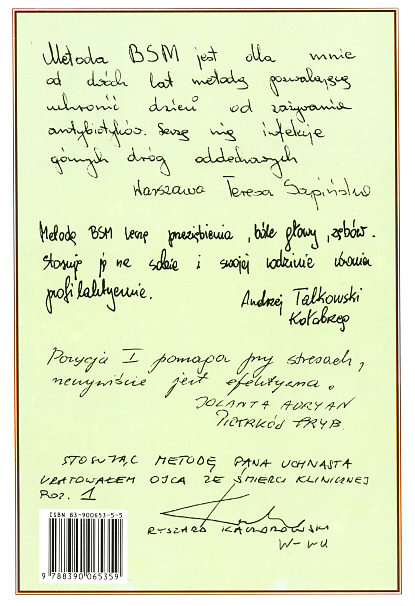 Metoda BSM jest dla mnie
od dwóch lat metodą pozwalającą
uchronić dzieci od zażywania
antybiotyków. Leczę nią infekcje
górnych dróg oddechowych
Warszawa Teresa
Metodą BSM leczę przeziębienia, bóle głowy, zębów.
Stosuję ją na sobie i swojej rodzinie również
profilaktycznie.
Andrzej Talkowski
Kołobrzeg
Pozycja I pomaga przy stresach,
rzeczywiście jest efektywna.
JOLANTA ADRYAN
PIOTRKÓW TRYB
STOSUJĄC METODĘ PANA UCHNASTA
URATOWAŁEM OJCA ZE ŚMIERCI KLINICZNEJ
POZ. 1
RYSZARD KACZOROWSKI
W-WA
ISBN 83-900653-5-5
9 788390 065359